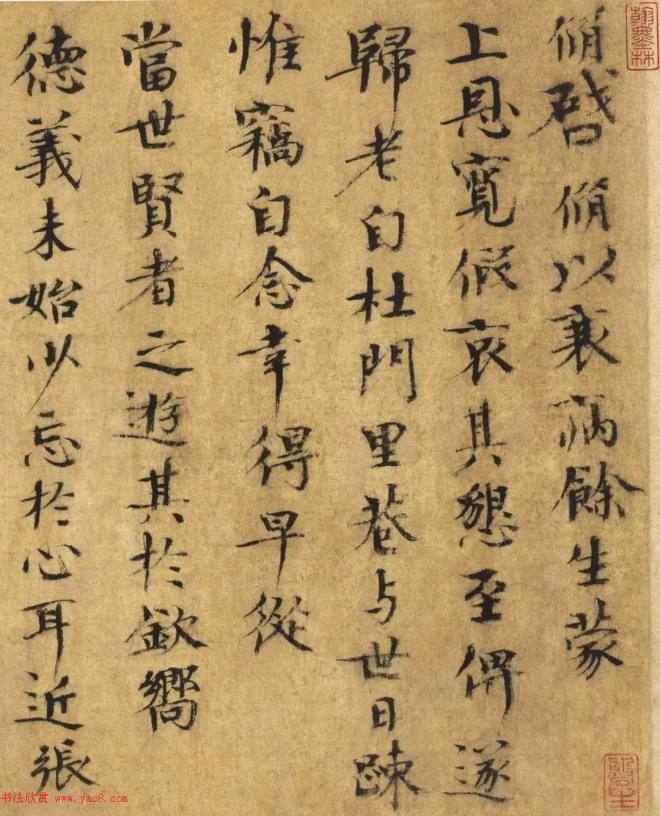 脩啓脩以衰病餘生蒙
上恩寬假哀其懇至俾遂
歸老自杜門里巷与世日踈
惟竊自念幸得早從
當世賢者之遊其於欽嚮
德義未始少忘於心耳近張
翰墨林
书法欣赏 www.yac8.com